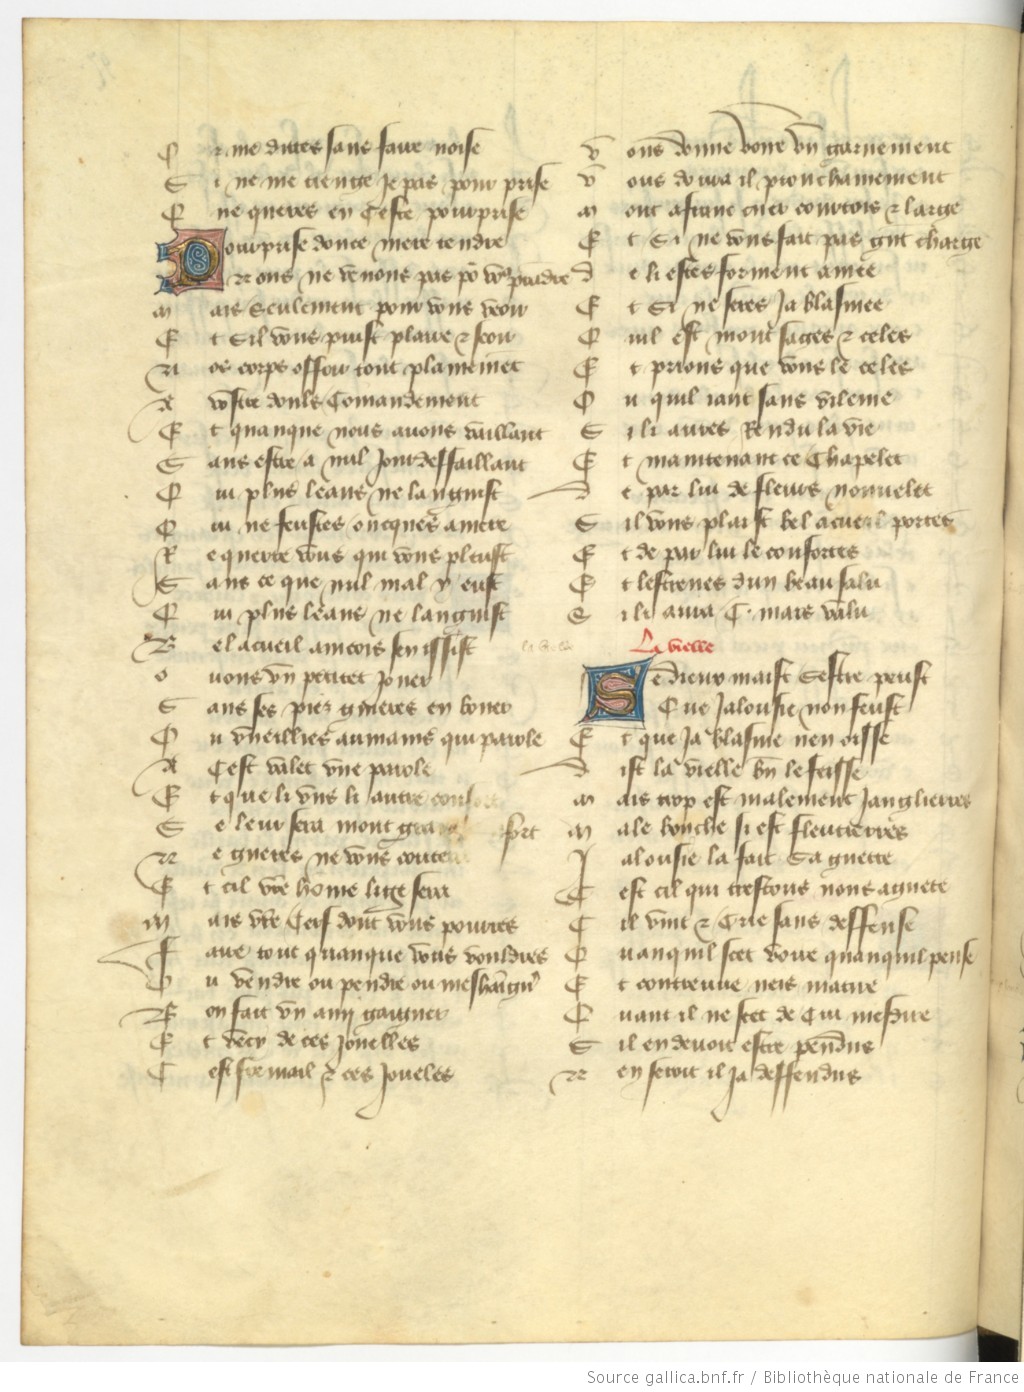 Et me dittes sans faire noise
Si ne me tienge Je pas pour prise
Ene queres en Ceste pourprise
Pourprise douce mere tendre
Nous ne venons pas po vo9 prendre
mais Seulement pour vous veoir
Et Sil vous puist plaire et seoir
Nos corps offrir tout plainemet
A vostre doulz Comandement
Et quanque nous auons vaillant
Sans estre a nul Jour deffaillant
Qui plus leans ne languist
Qui ne feustes oncques amere
Requerre vous qui vous pleust
Sans ce que nul mal y eust
Qui plus leans ne languist
Bel acueil aincois sen issist
o nous vn petitet Jouer
Sans ses piez gueres en bouer
Ou vueillies au mains qui parole
A Cest vallet vne parole
Et que li vns li autre
Se leur sera mont fort
Ne gueres ne vous
Et cil vre home lige sera
Mais vre Cerf dont vous pourres
Faire tout quanque vous vouldres
Ou vendre ou pendre ou
Bon fait vn amy gaigner
Et vecy de ces Jouelles
Cest fermail et ces Joueles
Vous donne voire vn garnement
Vous donra il prouchainement
Mout a franc cuer courtois et large
Et Si ne vous fait pas gnt charge
de li estes forment amee
Et Si ne seres Ja blasmee
Quil est mont sages et celes
Et prions que vous le celes
Ou quil iant sans vilenie
Si li aures Rendu la vie
Et maintenant ce Chapelet
de par lui de fleurs nouuelet
Sil vous plaist bel acueil portes
Et de par lui le confortes
Et lestrenes dun beau salu
Si li aura C. mars valu
La vielle
Se dieux maist Sestre peust
Que Jalousie non feust
Et que Ja blasme nen oisse
dist la vielle bn le feisse
mais trop est malement Janglierres
Male bouche si est fleutierres
Jalousie la fait Sa guette
Cest cil qui trestous nous aguete
Cil vint et Crie sans deffense
Quanquil scet voire quanquil pense
Et contreuue neis matire
Quant il ne scet de Cui mesdire
Sil en deuoit estre pendus
Nen seroit il Ja deffendus
Source gallica.bnf.fr / Bibliothèque nationale de France